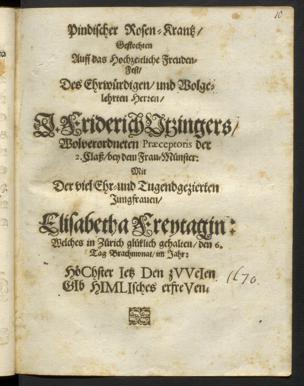 10
Pindischer Rosen-Krantz/
Geflochten
Auff das Hochzeitliche Freuden-
Fest/
Des Ehrwürdigen/ und Wolge-
lehrten Herren/
J. Friderich Utzingers/
Wolverordneten Præceptoris der
2. Claß/ bey dem Frau-Münster:
Mit
Der viel Ehr- und Tugendgezierten
Jungfrauen/
Elisabetha Freytagin:
Welches in Zürich glüklich gehalten/ den 6.
Tag Brachmonat/ im Jahr:
HöChster Ietz Den zVVeIen
GIb HIMLIsches erfreVen.
1670.